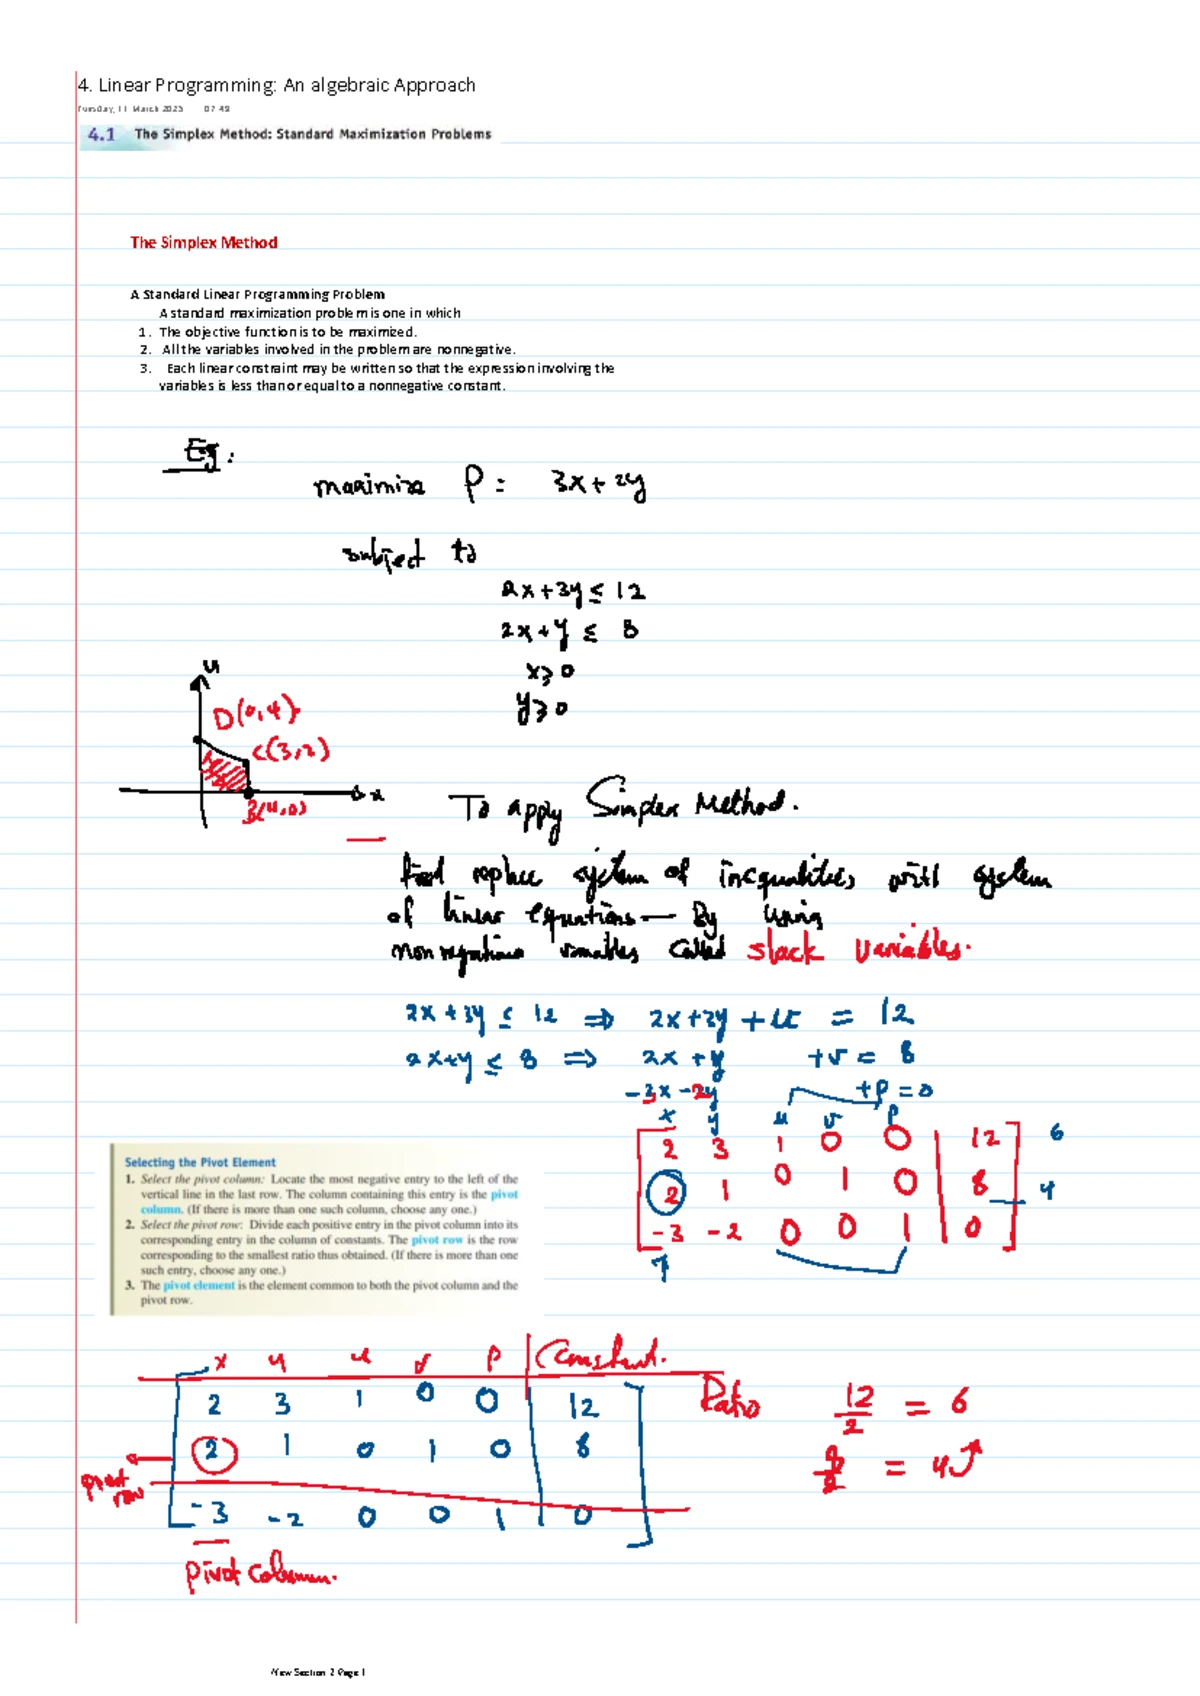 4. Linear Programming: An algebraic Approach
Tuesday, 11 March 2025 07:49
4.1 The Simplex Method: Standard Maximization Problems
The Simplex Method
A Standard Linear Programming Problem
A standard maximization problem is one in which
1. The objective function is to be maximized.
2. All the variables involved in the problem are nonnegative.
3. Each linear constraint may be written so that the expression involving the
variables is less than or equal to a nonnegative constant.
Eg:
maximize P = 3x + 2y
subject to
2x + 3y ≤ 12
2x + y ≤ 8
x ≥ 0
y ≥ 0
D(0,4)
C(3,2)
x
B(4,0)
To apply Simplex Method.
replace system of inequalities with system
of linear equations — By using
nonnegative variables called slack variables.
2x + 3y ≤ 12 ⇒ 2x + 3y + u = 12
2x + y ≤ 8 ⇒ 2x + y + v = 8
-3x - 2y + P = 0
x y u v P
2 3 1 0 0 | 12 6
2 1 0 1 0 | 8 4
-3 -2 0 0 1 | 0
Selecting the Pivot Element
1. Select the pivot column: Locate the most negative entry to the left of the
vertical line in the last row. The column containing this entry is the pivot
column. (If there is more than one such column, choose any one.)
2. Select the pivot row: Divide each positive entry in the pivot column into its
corresponding entry in the column of constants. The pivot row is the row
corresponding to the smallest ratio thus obtained. (If there is more than one
such entry, choose any one.)
3. The pivot element is the element common to both the pivot column and the
pivot row.
x y u v P | Constant.
2 3 1 0 0 | 12 Ratio 12/2 = 6
2 1 0 1 0 | 8 8/2 = 4
pivot row
-3 -2 0 0 1 | 0
pivot column.
New Section 2 Page 1